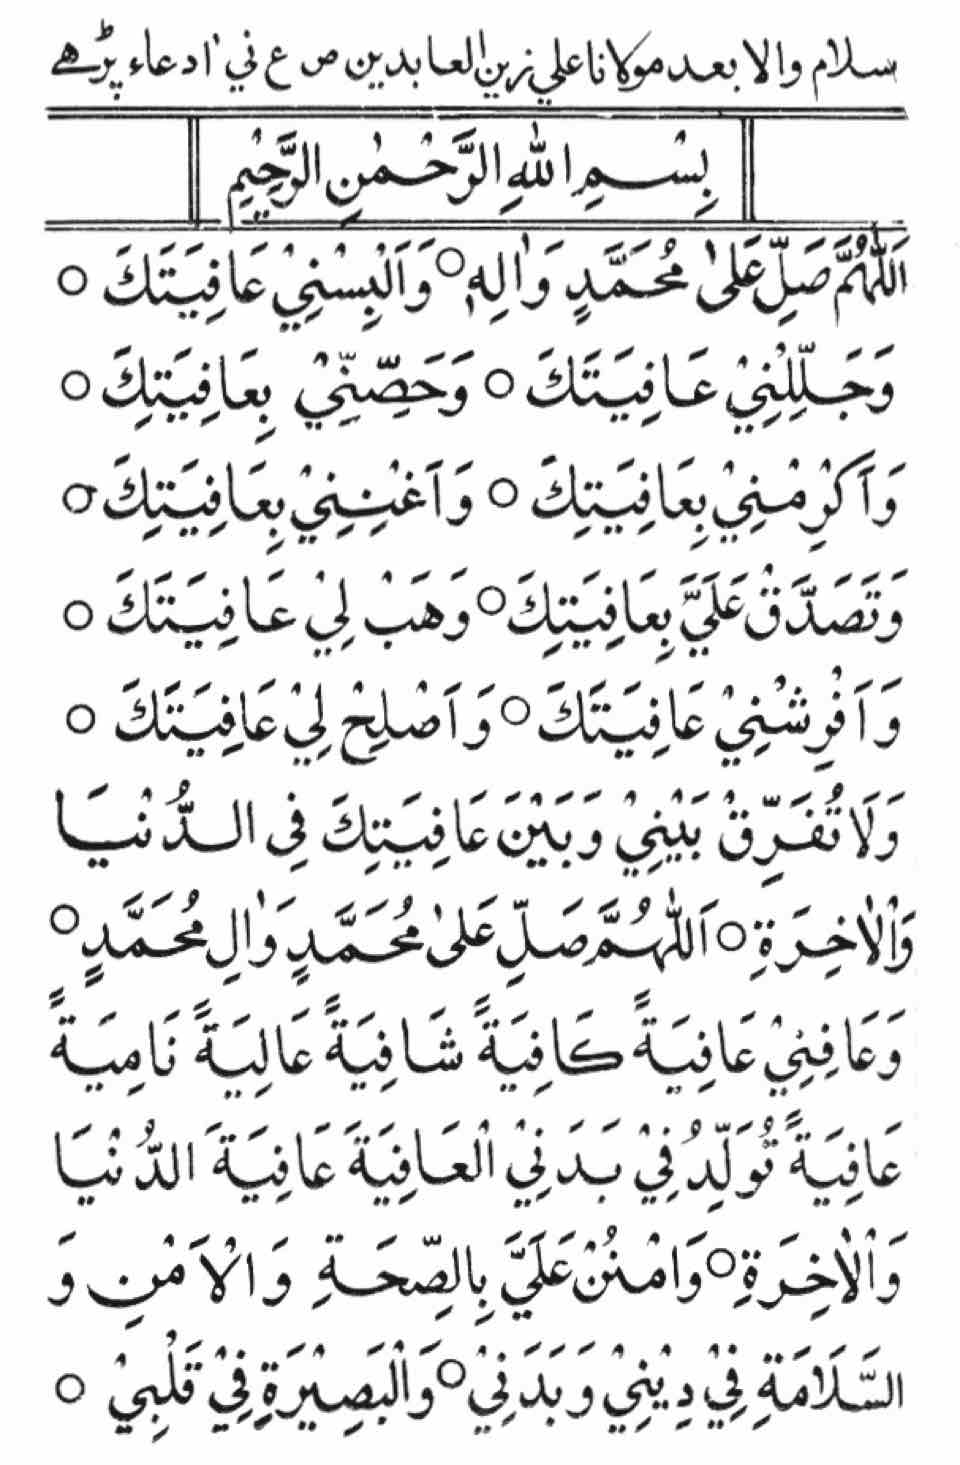 سلام والا بعد مولانا علي زين العابدين ص ع ني ادعاء پڑهے
بِسْمِ اللهِ الرَّحْمٰنِ الرَّحِيْمِ
اَللّٰهُمَّ صَلِّ عَلىٰ مُحَمَّدٍ وَاٰلِهٖ ○ وَاَلْبِسْنِيْ عَافِيَتَكَ ○
وَجَلِّلْنِيْ عَافِيَتَكَ ○ وَحَصِّنِّيْ بِعَافِيَتِكَ ○
وَاَكْرِمْنِيْ بِعَافِيَتِكَ ○ وَاَغْنِنِيْ بِعَافِيَتِكَ ○
وَتَصَدَّقْ عَلَيَّ بِعَافِيَتِكَ ○ وَهَبْ لِيْ عَافِيَتَكَ ○
وَاَفْرِشْنِيْ عَافِيَتَكَ ○ وَاَصْلِحْ لِيْ عَافِيَتَكَ ○
وَلَا تُفَرِّقْ بَيْنِيْ وَبَيْنَ عَافِيَتِكَ فِي الدُّنْيَا
وَالْاٰخِرَةِ ○ اَللّٰهُمَّ صَلِّ عَلىٰ مُحَمَّدٍ وَاٰلِ مُحَمَّدٍ ○
وَعَافِنِيْ عَافِيَةً كَافِيَةً شَافِيَةً عَالِيَةً نَامِيَةً
عَافِيَةً تُوَلِّدُ فِيْ بَدَنِيْ الْعَافِيَةَ عَافِيَةَ الدُّنْيَا
وَالْاٰخِرَةِ ○ وَامْنُنْ عَلَيَّ بِالصِّحَةِ وَالْاَمْنِ وَ
السَّلَامَةِ فِيْ دِيْنِيْ وَبَدَنِيْ ○ وَالْبَصِيْرَةِ فِيْ قَلْبِيْ ○